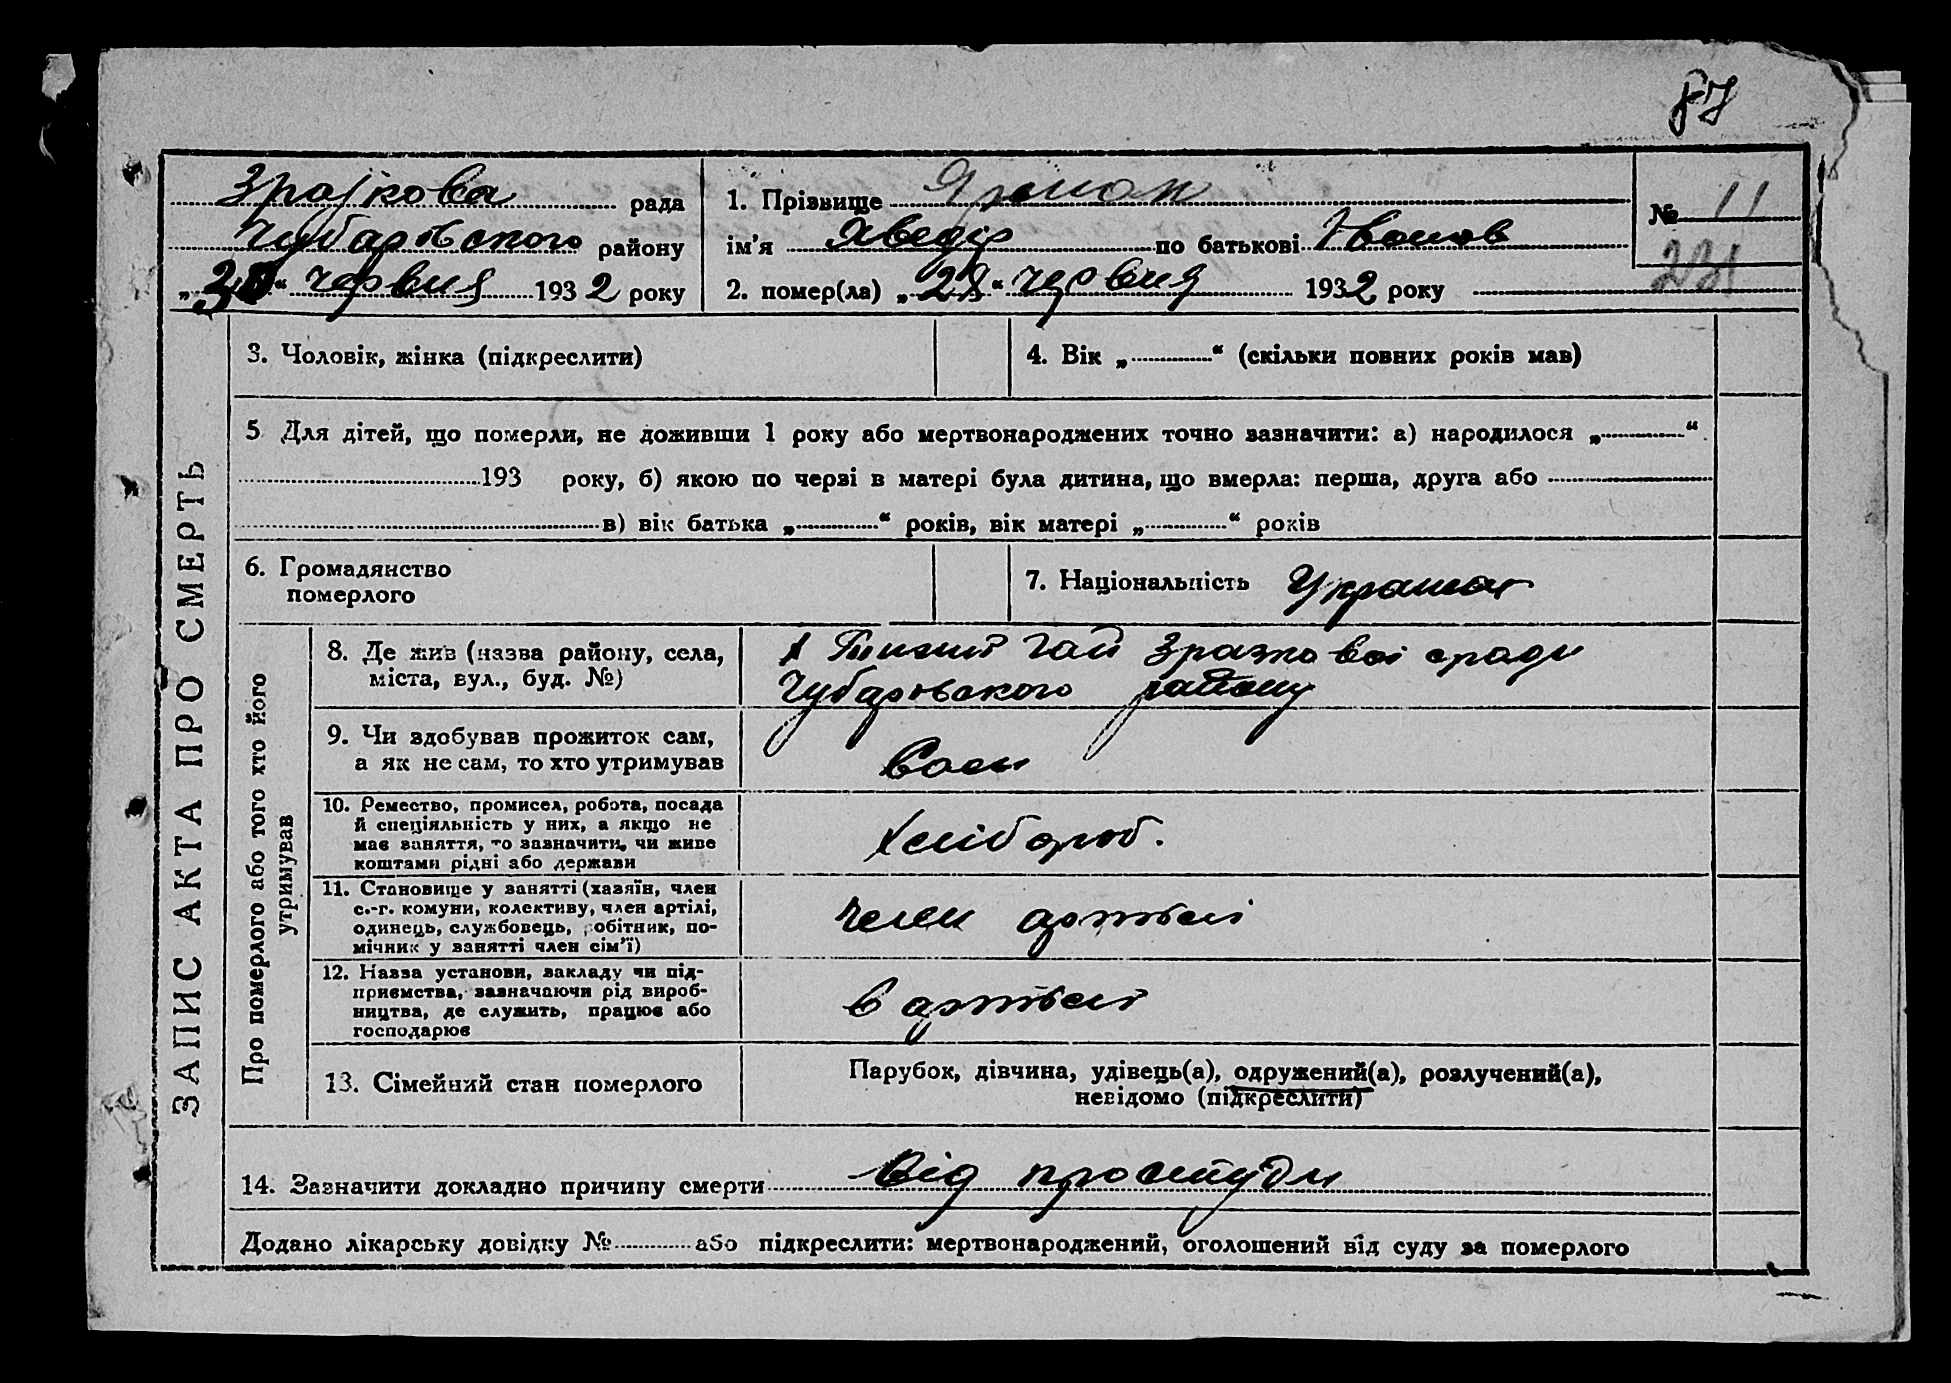 87
Зразкова рада
Чубарівського району
„30“ червня 1932 року
1. Прізвище
ім’я Хведір по батькові Іванов
2. помер(ла) „28“ червня 1932 року
№ 11
231
ЗАПИС АКТА ПРО СМЕРТЬ
3. Чоловік, жінка (підкреслити)
4. Вік „ “ (скільки повних років мав)
5 Для дітей, що померли, не доживши 1 року або мертвонароджених точно зазначити: а) народилося „ “
193 року, б) якою по черзі в матері була дитина, що вмерла: перша, друга або
в) вік батька „ “ років, вік матері „ “ років
6. Громадянство
померлого
7. Національність
Про померлого або того хто його
утримував
8. Де жив (назва району, села,
міста, вул., буд. №)
Гай Зразкової сради
Чубарівського району
9. Чи здобував прожиток сам,
а як не сам, то хто утримував
Сам
10. Ремество, промисел, робота, посада
й спеціяльність у них, а якщо не
має заняття, то зазначити, чи живе
коштами рідні або держави
Хлібороб.
11. Становище у занятті (хазяїн, член
с.-г. комуни, колективу, член артілі,
одинець, службовець, робітник, по-
мічник у занятті член сім’ї)
член артілі
12. Назва установи, закладу чи під-
приємства, зазначаючи рід вироб-
ництва, де служить, працює або
господарює
в артілі
13. Сімейний стан померлого
Парубок, дівчина, удівець(а), одружений(а), розлучений(а),
невідомо (підкреслити)
14. Зазначити докладно причину смерти Від простуди
Додано лікарську довідку № або підкреслити: мертвонароджений, оголошений від суду за померлого